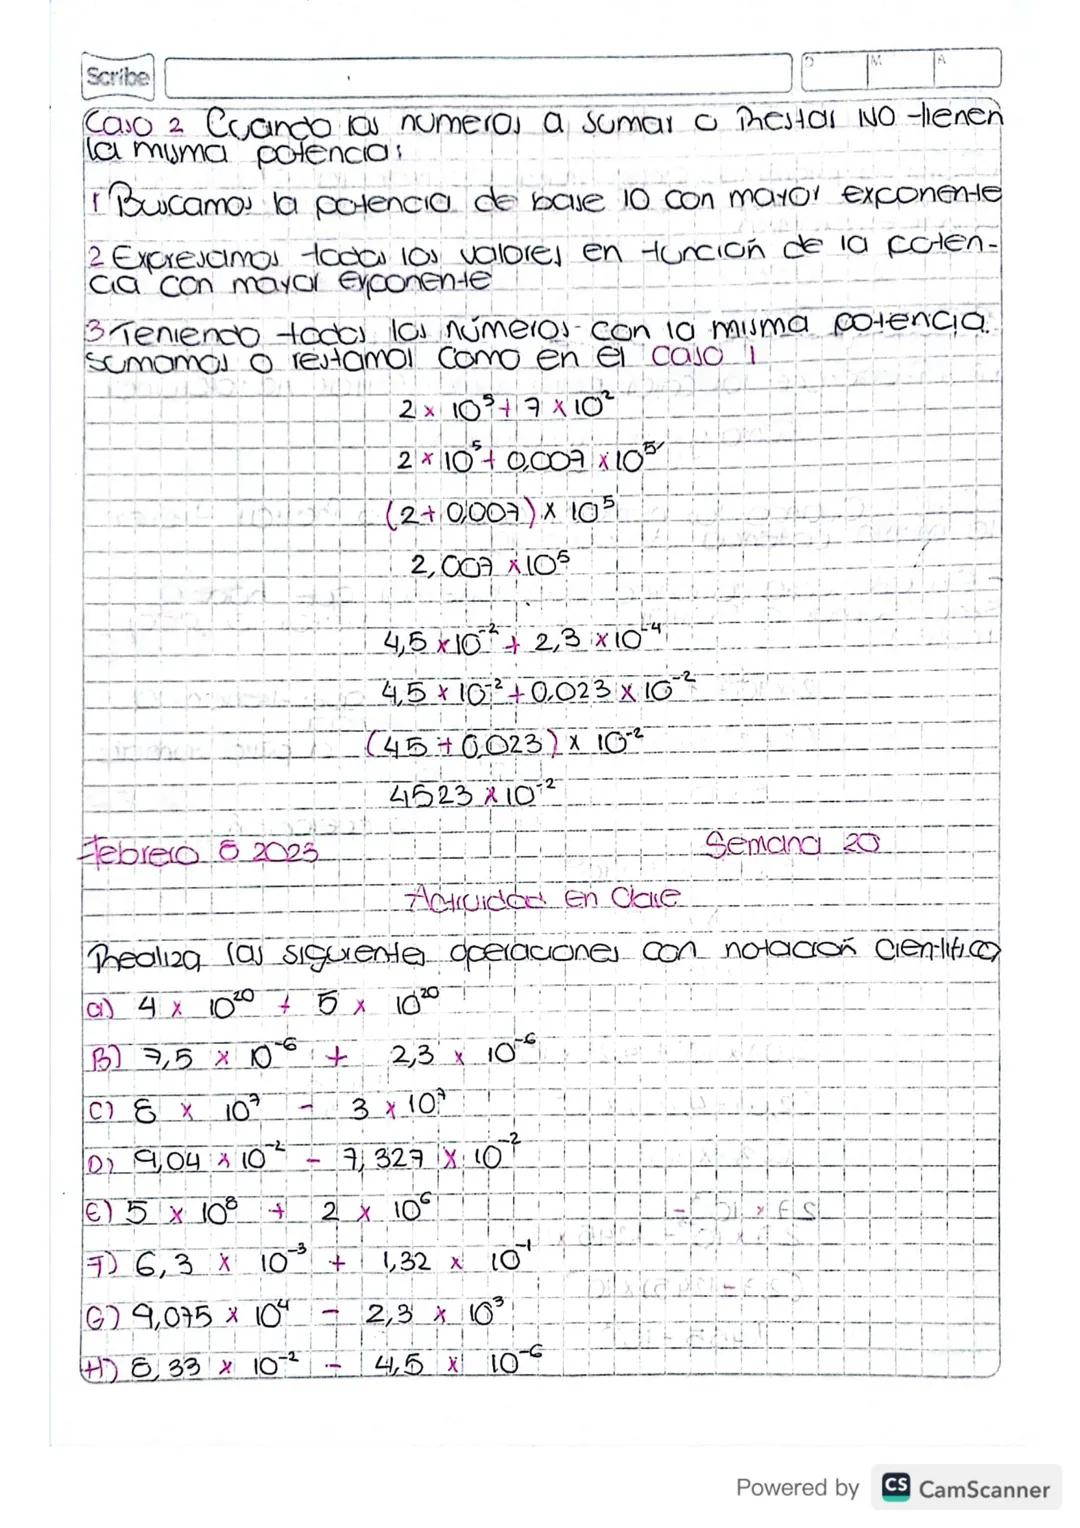 Scribe
D M A
Caso 2 Cuando los numeros a sumar o Restar NO tienen
la misma potencia:
1 Buscamos la potencia de base 10 con mayor exponente
2 Expresamos todos los valores en función de la poten-
cia con mayor exponente
3 Teniendo todos los números con la misma potencia.
sumamos o restamos como en el caso 1
2 × 10⁵ + 7 × 10²
2 × 10⁵ + 0,007 × 10⁵
(2 + 0,007) × 10⁵
2,007 × 10⁵
4,5 × 10⁻² + 2,3 × 10⁻⁴
4,5 × 10⁻² + 0,023 × 10⁻²
(45 + 0,023) × 10⁻²
4523 × 10⁻²
Febrero 8 2023 Semana 20
Actividad En Clase
Realiza las siguientes operaciones con notación cientifica
a) 4 × 10²⁰ + 5 × 10²⁰
B) 7,5 × 10⁻⁶ + 2,3 × 10⁻⁶
C) 8 × 10⁷ - 3 × 10⁷
D) 9,04 × 10⁻² - 7,327 × 10⁻²
E) 5 × 10⁸ + 2 × 10⁶
F) 6,3 × 10⁻³ + 1,32 × 10⁻¹
G) 9,075 × 10⁴ - 2,3 × 10³
H) 8,33 × 10⁻² - 4,5 × 10⁻⁶
Powered by CS CamScanner